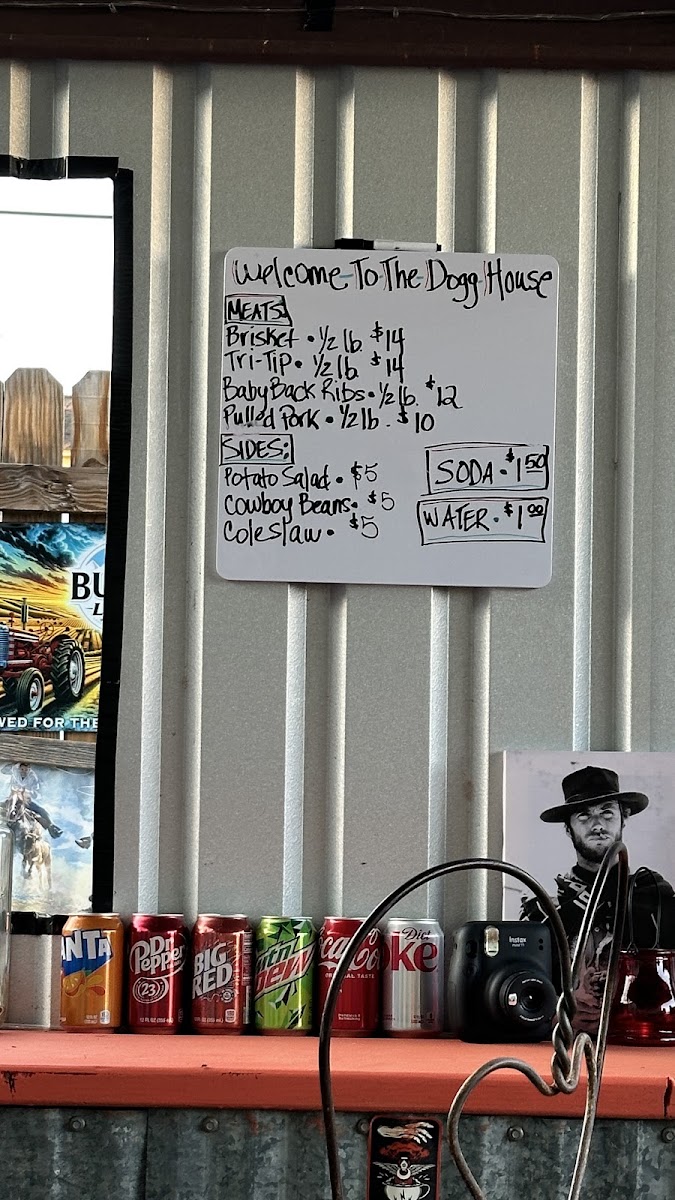 Welcome To The Dogg House
MEATS:
Brisket • 1/2 lb. $14
Tri-Tip • 1/2 lb. $14
Baby Back Ribs • 1/2 lb. $12
Pulled Pork • 1/2 lb. $10
SIDES:
Potato Salad • $5
Cowboy Beans • $5
Coleslaw • $5
SODA • $1.50
WATER • $1.00
BU
L
WED FOR THE
ANTA
Dr Pepper
23
BIG
RED
mtn
DEW
Coca-Co
AL TASTE
Diet
Ke
instax